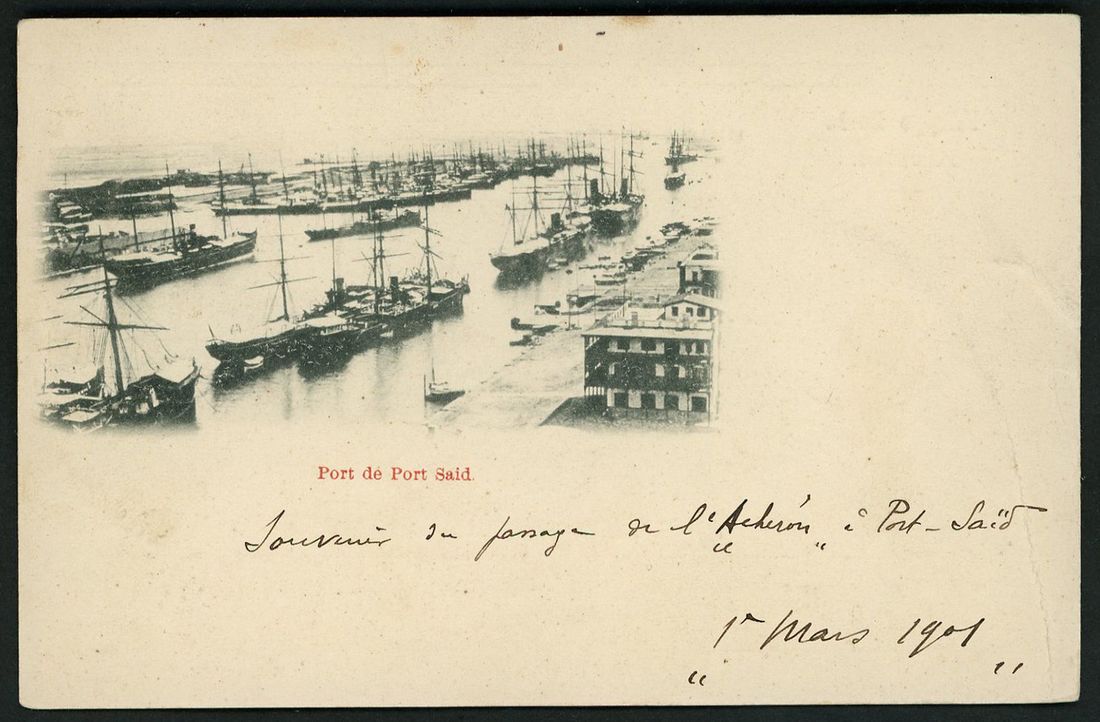 Port de Port Said.
Souvenir du passage de l'"Achéron" à Port-Saïd
1er Mars 1901
" "